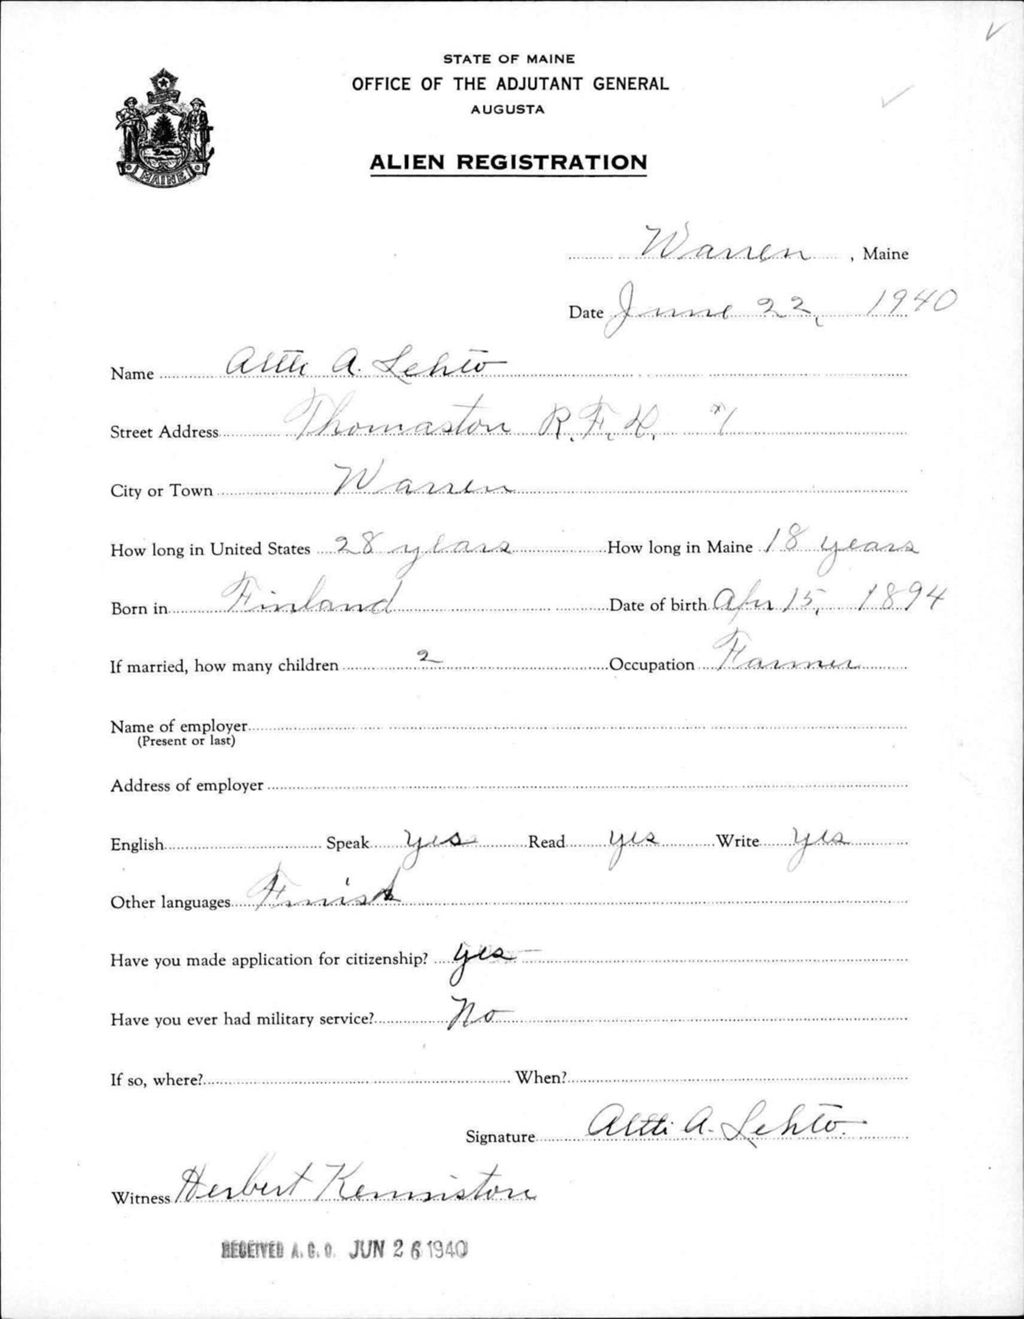 STATE OF MAINE
OFFICE OF THE ADJUTANT GENERAL
AUGUSTA
MAINE
ALIEN REGISTRATION
Warren, Maine
Date June 22, 1940
Name A. Lehto
Street Address Thomaston R.F.D. #1
City or Town Warren
How long in United States 28 years How long in Maine 18 years
Born in Finland Date of birth Apr 15, 1894
If married, how many children 2 Occupation Farmer
Name of employer
(Present or last)
Address of employer
English Speak yes Read yes Write yes
Other languages Finish
Have you made application for citizenship? yes
Have you ever had military service? No
If so, where? When?
Signature A. Lehto.
Witness Herbert Kenniston
RECEIVED A. G. O. JUN 26 1940